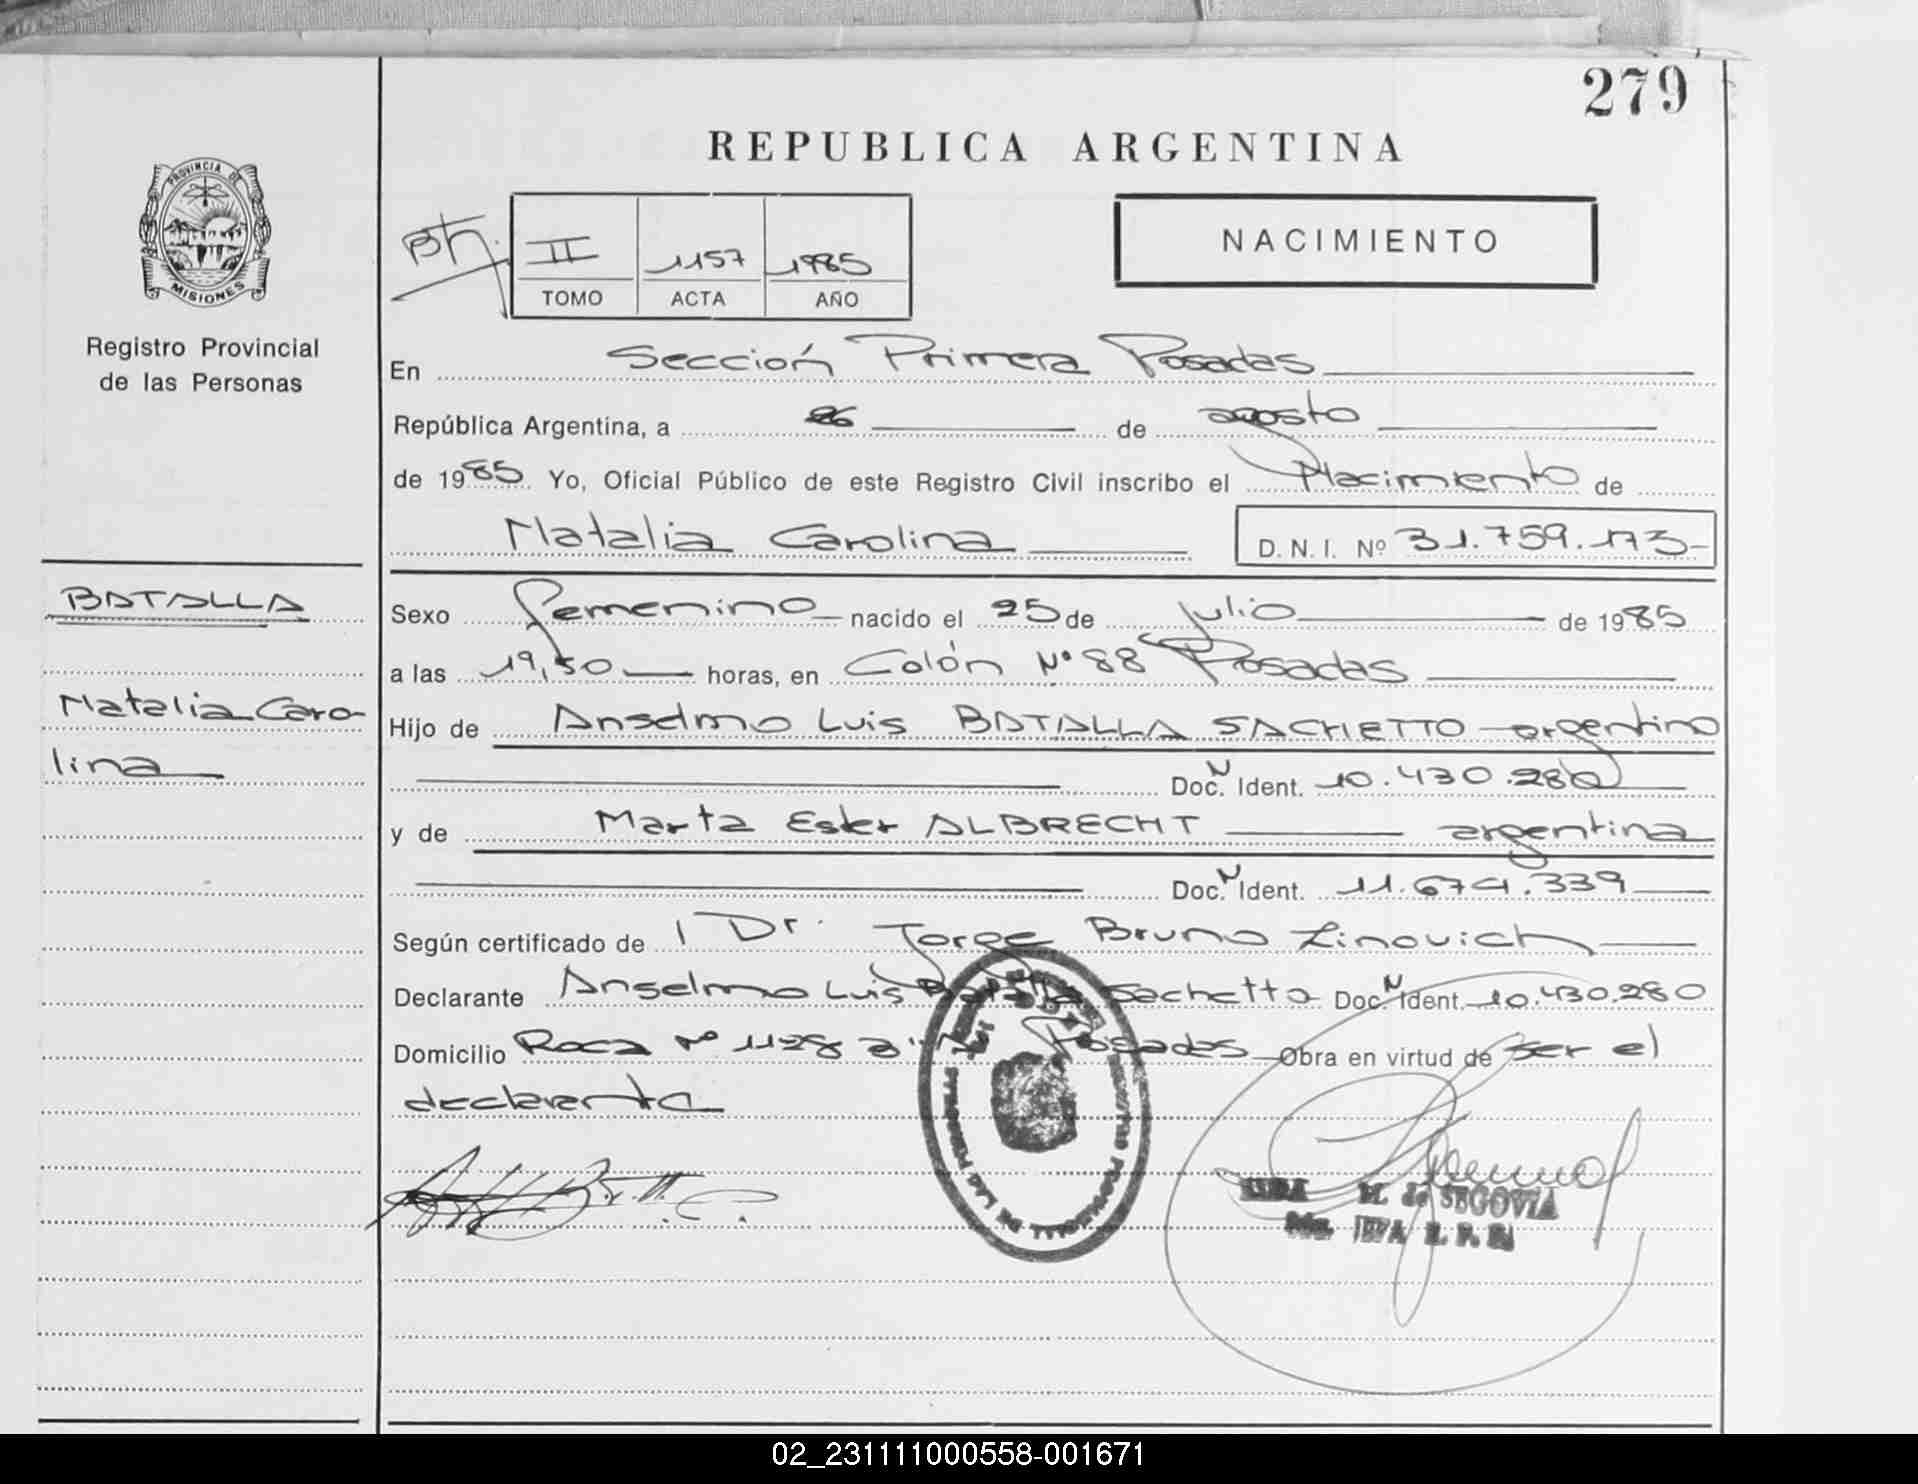 279
REPUBLICA ARGENTINA
PROVINCIA DE
MISIONES
Registro Provincial
de las Personas
II 1157 1985
TOMO ACTA AÑO
NACIMIENTO
En Sección Primera Posadas
República Argentina, a de agosto
de 1985 Yo, Oficial Público de este Registro Civil inscribo el Nacimiento de
Natalia Carolina D. N. I. Nº 31.759.173-
BATALLA
Natalia Caro-
lina
Sexo Femenino nacido el 25 de Julio de 1985
a las 19,50 horas, en Colón Nº 88 Posadas
Hijo de Anselmo Luis BATALLA SACHETTO argentino
Doc. N Ident. 10.430.280
y de Marta Ester ALBRECHT argentina
Doc. N Ident. 11.674.339
Según certificado de Dr. Jorge Bruno Zinovich
Declarante Anselmo Luis Batalla Sachetto Doc. N Ident. 10.430.280
Domicilio Roca Nº 1128 Posadas Obra en virtud de ser el
declarante
REGISTRO PROVINCIAL DE LAS PERSONAS
M. de SEGOVIA
02_231111000558-001671